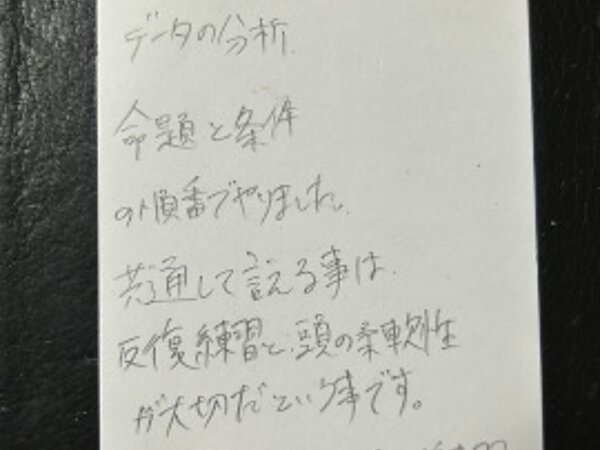 データの分析
命題と条件
の順番でやりました。
共通して言える事は
反復練習と、頭の柔軟性
が大切だという事です。